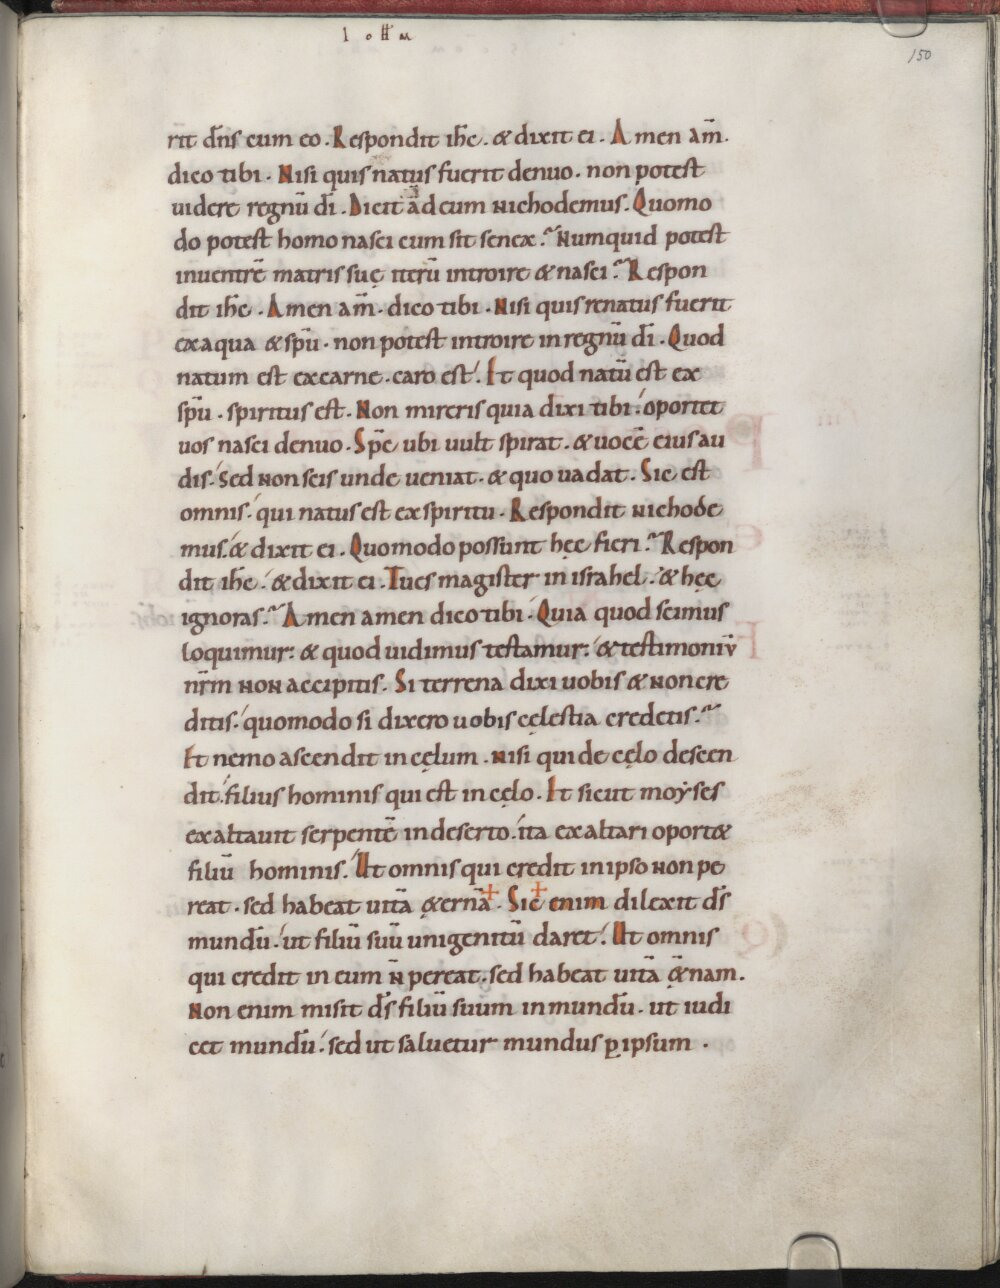 IOHM
150
rit dn̄s cum eo. Respondit ih̄c. & dixit ei. Amen am̄.
dico tibi. Nisi quis natus fuerit denuo. non potest
uidere regnū dī. Dicit ad eum nichodemus. Quomo
do potest homo nasci cum sit senex? Numquid potest
inuentrē matris suę iterū introire & nasci? Respon
dit ih̄c. Amen am̄. dico tibi. Nisi quis renatus fuerit
ex aqua & sp̄u. non potest introire in regnū dī. Quod
natum est ex carne. caro est. Et quod natū est ex
sp̄u. spiritus est. Non mireris quia dixi tibi. oportet
uos nasci denuo. Sp̄c ubi uult spirat. & uocē eius au
dis. sed non scis unde ueniat. & quo uadat. Sic est
omnis. qui natus est ex spiritu. Respondit nichode
mus. & dixit ei. Quomodo possunt hęc fieri? Respon
dit ih̄c. & dixit ei. Tu es magister in israhel. & hęc
ignoras? Amen amen dico tibi. Quia quod scimus
loquimur: & quod uidimus testamur: & testimoniū
nr̄m non accipitis. Si terrena dixi uobis & non cre
ditis. quomodo si dixero uobis cęlestia credetis?
Et nemo ascendit in cęlum. nisi qui de cęlo descen
dit. filius hominis qui est in cęlo. Et sicut moẏses
exaltauit serpentē in deserto. ita exaltari oport&
filiū hominis. Ut omnis qui credit in ipso non pe
reat. sed habeat uitā ęternā. Sic enim dilexit dс̄
mundū. ut filiū suū unigenitū daret. Ut omnis
qui credit in eum n̄ pereat. sed habeat uitā &̨nam.
Non enim misit ds̄ filiū suum in mundū. ut iudi
cet mundū. sed ut saluetur mundus ꝑ ipsum.